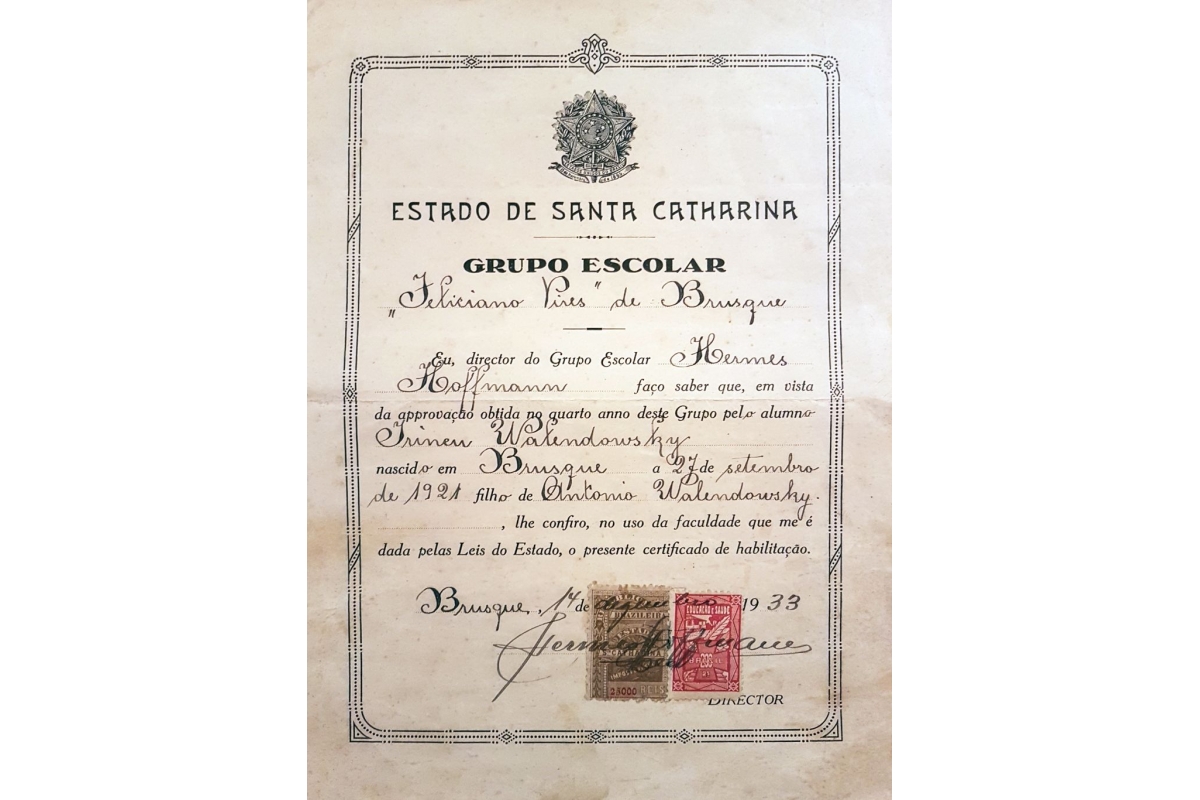 ESTADO DE SANTA CATHARINA
GRUPO ESCOLAR
„Feliciano Pires" de Brusque
Eu, director do Grupo Escolar Hermes
Hoffmann faço saber que, em vista
da approvação obtida no quarto anno deste Grupo pelo alumno
Irineu Walendowsky
nascido em Brusque a 27 de setembro
de 1921 filho de Antonio Walendowsky.
, lhe confiro, no uso da faculdade que me é
dada pelas Leis do Estado, o presente certificado de habilitação.
Brusque, 14 de dezembro 1933
BRAZILEIRA
EDUCAÇÃO E SAUDE
ESTADO
STA CATHARINA
200
2$000 REIS
DIRECTOR